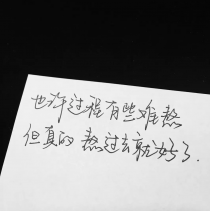 也许过程有些难熬
但真的 熬过去就好了.